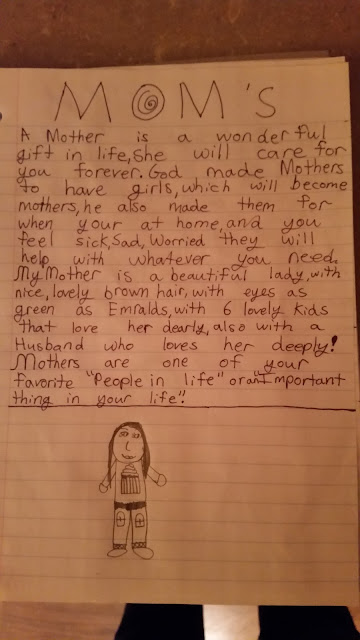 MOM'S
A Mother is a wonderful
gift in life, She will care for
you forever. God made Mothers
to have girls, which will become
mothers, he also made them for
when your at home, and you
feel sick, Sad, Worried they will
help with whatever you need.
My Mother is a beautiful lady, with
nice, lovely brown hair, with eyes as
green as Emralds, with 6 lovely kids
that love her dearly, also with a
Husband who loves her deeply!
Mothers are one of your
favorite "People in life" or "an important
thing in your life".